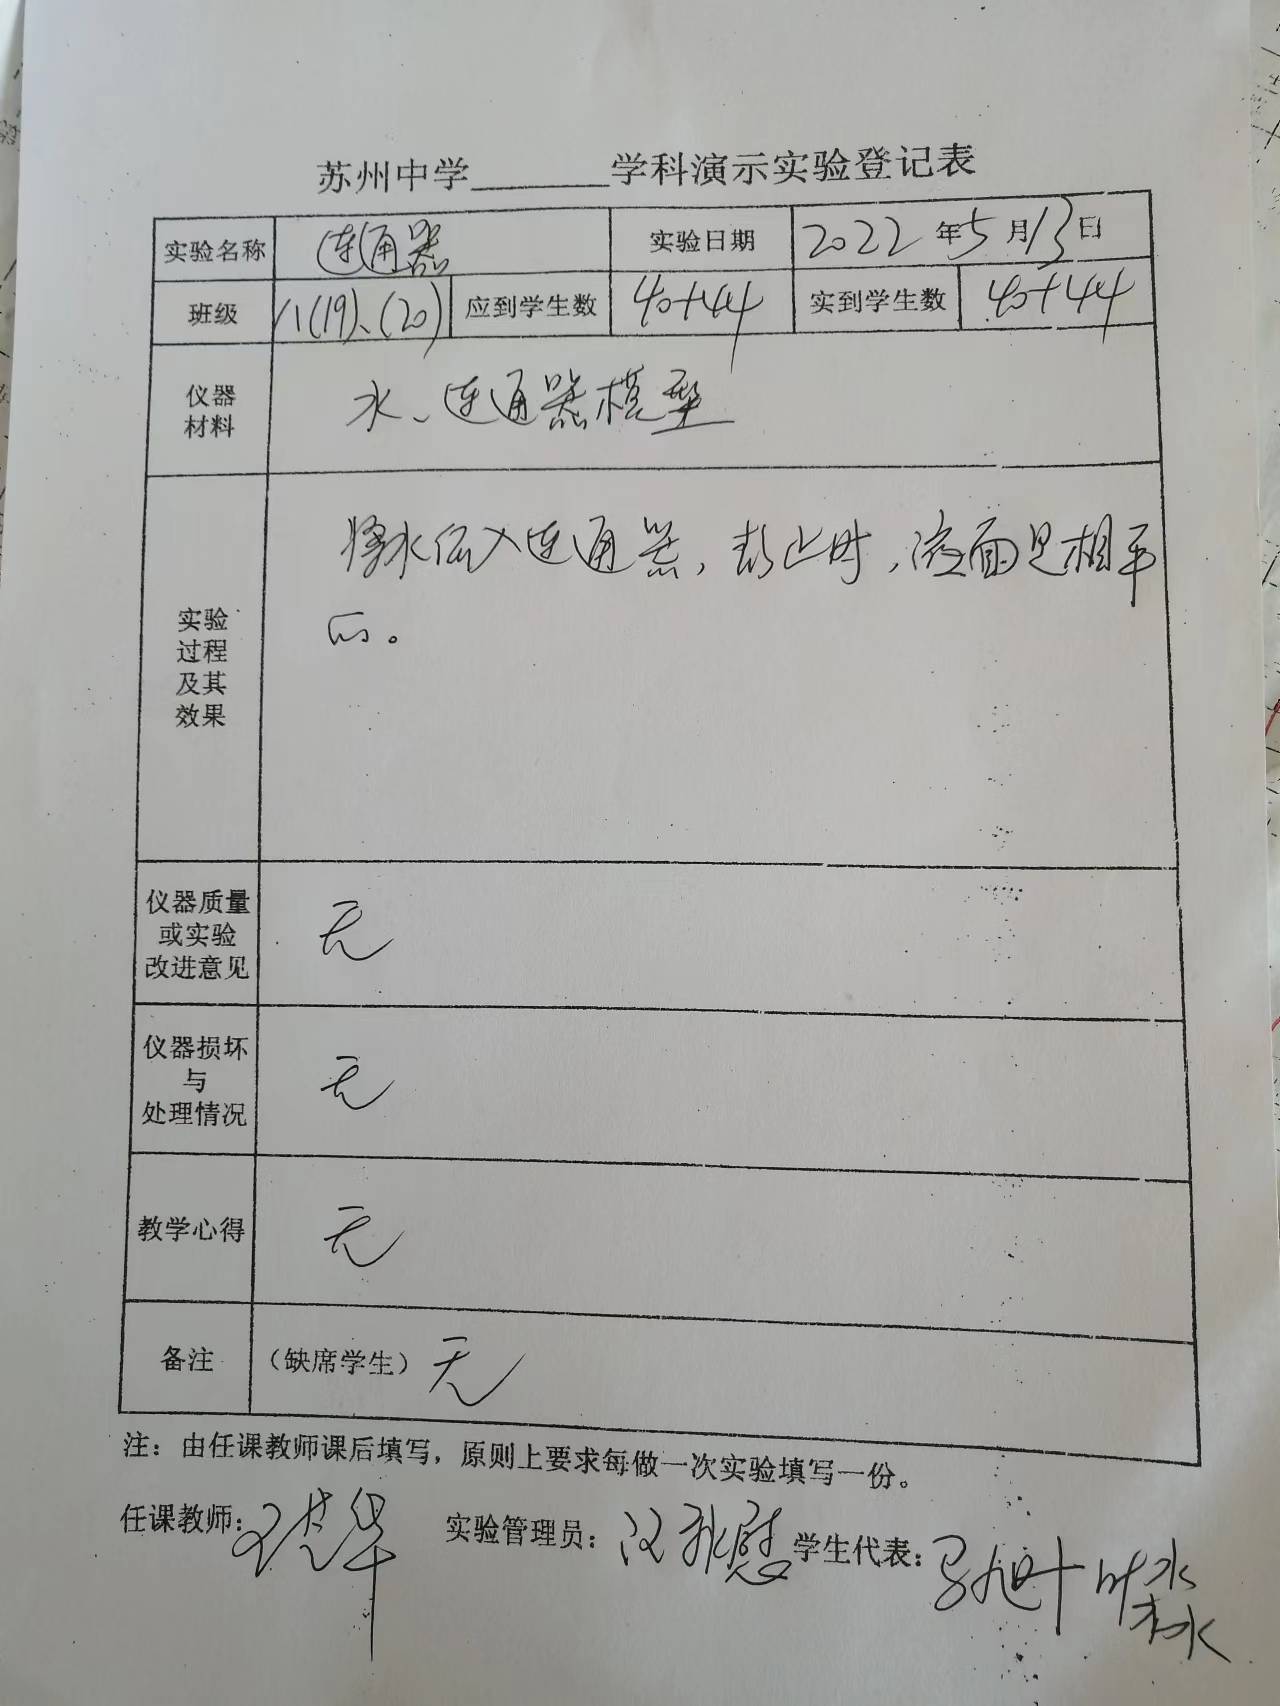 苏州中学______学科演示实验登记表
实验名称 连通器 实验日期 2022年5月13日
班级 八(19)、(20) 应到学生数 40+44 实到学生数 40+44
仪器
材料
水、连通器模型
将水倒入连通器,静止时,液面是相平
的。
实验
过程
及其
效果
仪器质量
或实验
改进意见
无
仪器损坏
与
处理情况
无
教学心得 无
备注 (缺席学生) 无
注:由任课教师课后填写,原则上要求每做一次实验填写一份。
任课教师: 实验管理员: 学生代表: